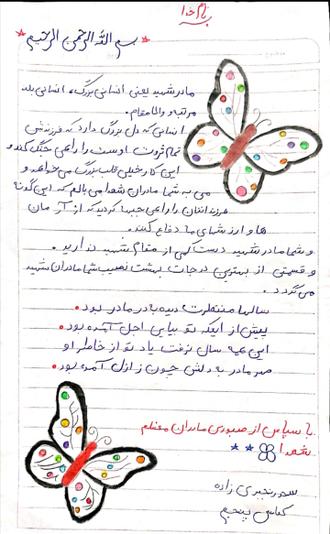 بنام خدا
بسم الله الرحمن الرحیم
مادر شهید یعنی انسانی بزرگ، انسانی بلند
مرتبه و والا مقام.
انسانی که دل بزرگ دارد که فرزندش
تمام ثروت اوست را راهی جنگ کند و
این کار خیلی قلب بزرگ می خواهد و
من به شما مادران شهدا می بالم که این گونه
فرزندانتان را راهی جبهه ها کردید که از آرمان
ها و ارزش های ما دفاع کنند.
و شما مادر شهید دست کمی از مقام شهید ندارید.
و قسمتی از بهترین درجات بهشت نصیب شما مادران شهید
می گردد.
سالها منتظرت دیده مادر بود.
پیش از اینکه تو بیایی اجل آمده بود.
این همه سال نرفت یاد تو از خاطر او
مهر مادر به دلش چون ز ازل آمده بود.
با سپاس از صبوری مادران معظم
شهدا
کلاس پنجم